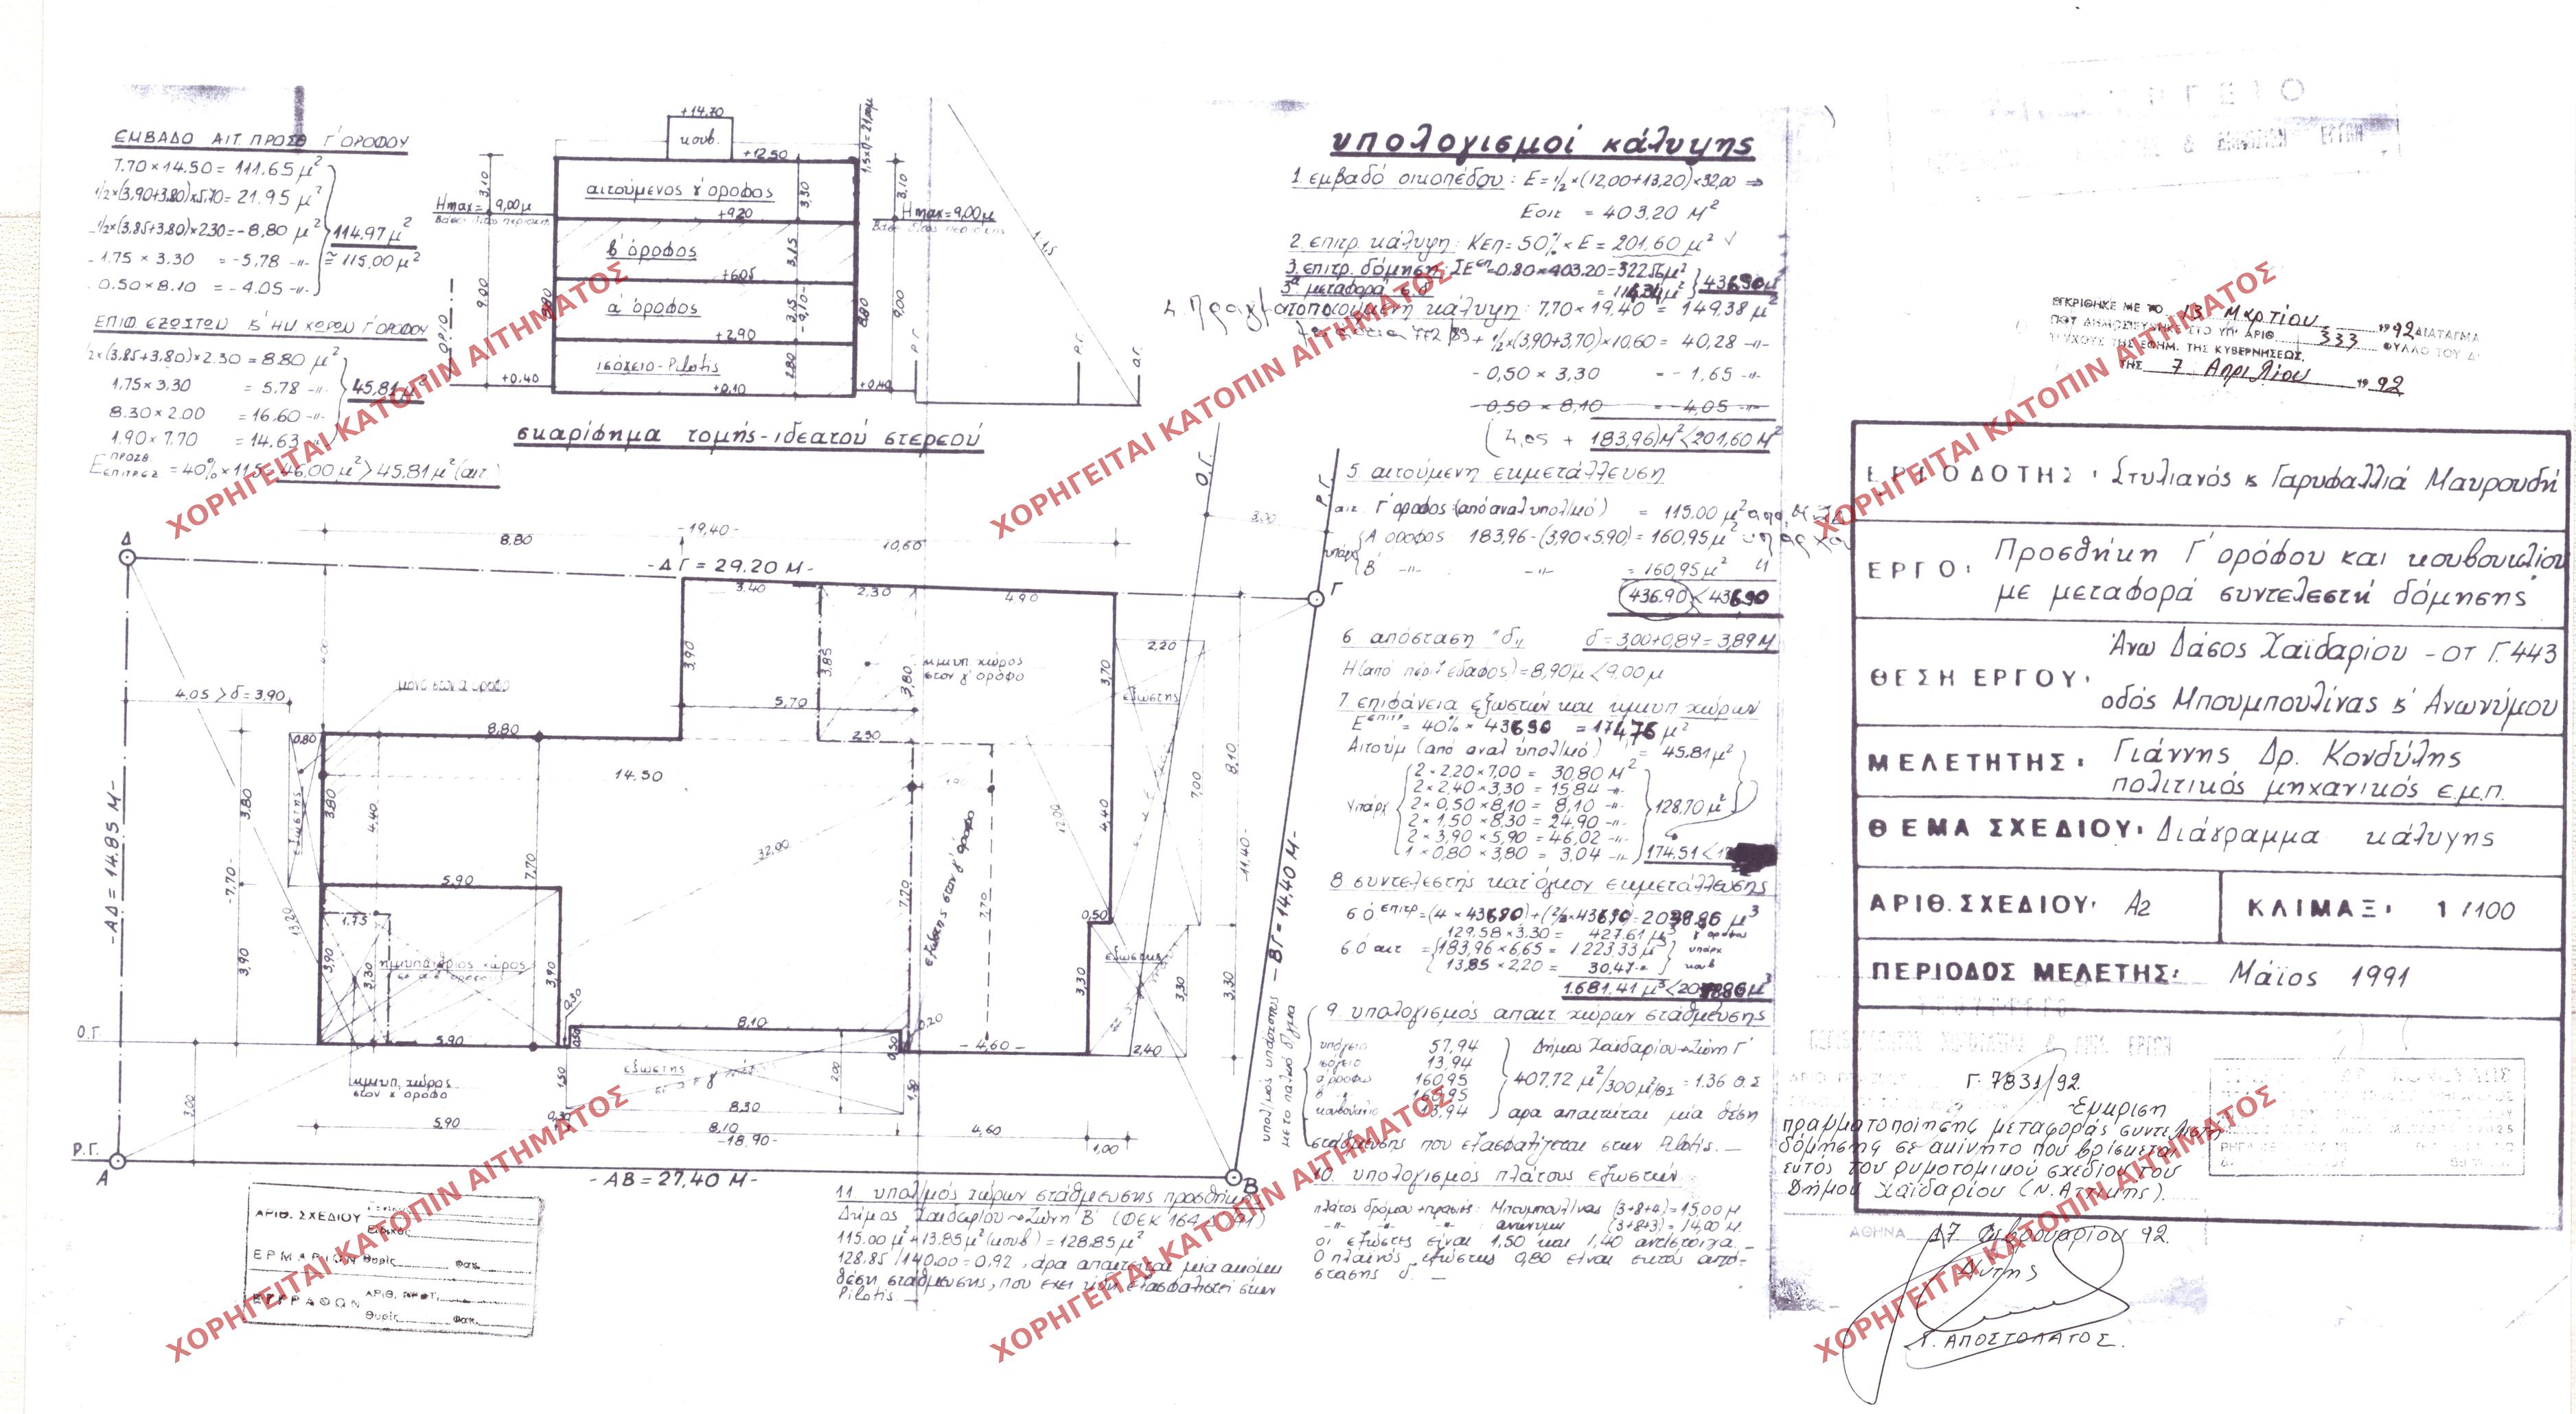 ΕΜΒΑΔΟ ΑΙΤ. ΠΡΟΣΘ Γ' ΟΡΟΦΟΥ
7.70 × 14.50 = 111.65 μ²
1/2×(3,90+3.80)×5.70 = 21.95 μ²
-1/2×(3.85+3.80)×2.30 = -8,80 μ²
-1.75 × 3.30 = -5,78 -"-
-0.50 × 8.10 = -4.05 -"-
114.97 μ²
≅ 115,00 μ²
ΕΠΙΦ. ΕΞΩΣΤΩΝ Κ' ΗΜ. ΧΩΡΩΝ Γ' ΟΡΟΦΟΥ
1/2×(3.85+3,80)×2.30 = 8.80 μ²
1.75 × 3.30 = 5.78 -"-
8.30 × 2.00 = 16.60 -"-
1.90 × 7.70 = 14.63 -"-
45,81 μ²
Ε ΠΡΟΣΘ. ΕΠΙΤΡΕΖ = 40% × 115 = 46.00 μ² > 45.81 μ² (αιτ.)
+14,70
κουβ.
+12,50
αιτούμενος γ' όροφος
+9,20
β' όροφος
+6,05
α' όροφος
+2,90
ισόγειο - Pilotis
+0,10
+0,40
+0,40
Hmax = 9,00μ
Hmax = 9,00μ
3,10
9,00
3,30
3,15
3,15
2,80
8,80
3,10
9,00
ΟΡΙΟ
Ρ.Γ.
Ρ.Γ.
Ο.Γ.
1,5
σκαρίφημα τομής - ιδεατού στερεού
υπολογισμοί κάλυψης
1. εμβαδό οικοπέδου : Ε = 1/2 × (12,00+13,20) × 32,00 ⇒
Εοικ = 403,20 Μ²
2. επιτρ. κάλυψη : Κεπ = 50% × Ε = 201,60 μ² √
3. επιτρ. δόμηση : ΣΕεπ = 0.80 × 403.20 = 322.56 μ²
3α μεταφορά σ.δ. = 114,34 μ²
436.90 μ²
4. Πραγματοποιούμενη κάλυψη : 7.70 × 19,40 = 149.38 μ²
+ 1/2 × (3,90+3,70) × 10,60 = 40,28 -"-
- 0,50 × 3,30 = - 1,65 -"-
- 0,50 × 8,10 = - 4,05 -"-
(4,05 + 183,96) Μ² < 201,60 Μ²
5. αιτούμενη εκμετάλλευση
αιτ. Γ' όροφος (από αναλ. υπολ/μό) = 115.00 μ²
υπάρχ Α όροφος 183,96 - (3,90 × 5,90) = 160,95 μ²
Β -"- -"- = 160,95 μ²
436.90 < 436.90
6. απόσταση "δ" δ = 3,00 + 0,89 = 3,89 Μ
Η (από περιξ εδαφος) = 8,90 μ < 9,00 μ
7. επιφάνεια εξωστών και ημιυπ χώρων
Ε επιτρ = 40% × 436.90 = 174,76 μ²
Αιτούμ (από αναλ υπολ/μό) = 45.81 μ²
Υπάρχ
2 × 2,20 × 7,00 = 30,80 Μ²
2 × 2,40 × 3,30 = 15,84 -"-
2 × 0,50 × 8,10 = 8,10 -"-
2 × 1,50 × 8,30 = 24,90 -"-
2 × 3,90 × 5,90 = 46,02 -"-
1 × 0,80 × 3,80 = 3,04 -"-
128.70 μ²
174.51 < 17
8. συντελεστής κατ' όγκον εκμετάλλευσης
129.58 × 3.30 = 427.61 μ³ γ' όροφου
σ ό αιτ = 183,96 × 6,65 = 1.223,33 μ³ υπάρχ
13,85 × 2,20 = 30,47 -"- κουβ
1.681,41 μ³
9. υπολογισμός απαιτ. χώρων στάθμευσης
υπόγειο 57,94
ισόγειο 13,94
α' όροφο 160,95
β' -"- 160,95
κουβούκλιο 13,94
Δήμος Χαϊδαρίου → Ζώνη Γ'
407,72 μ²/300 μ²/θς = 1.36 Θ.Σ
αρα απαιτείται μία θέση
στάθμευσης που εξασφαλίζεται στην Pilotis. —
10. υπολογισμός πλάτους εξωστών
πλάτος δρόμου + πρασιές : Μπουμπουλίνας (3+8+4) = 15,00 Μ.
-"- -"- -"- : ανώνυμη (3+8+3) = 14,00 Μ.
οι εξώστες είναι 1,50 και 1,40 αντίστοιχα. —
Ο πλαϊνός εξώστης 0,80 είναι εκτός από-
στασης δ. —
11. υπολ/μός χώρων στάθμευσης προσθήκης
Δήμος Χαϊδαρίου → Ζώνη Β'
115.00 μ² + 13.85 μ² (κουβ) = 128.85 μ²
128.85 / 140.00 = 0.92, άρα απαιτείται μία ακόμη
θέση στάθμευσης, που έχει ήδη εξασφαλιστεί στην
Pilotis. —
Δ
-19,40-
8,80
10,60
-ΔΓ = 29.20 Μ-
Γ
Ο.Γ.
Ρ.Γ.
3,00
3,40
2,30
4,90
3,90
3,85
3,80
3,70
5,70
2,30
ημιυπ. χώρος
στον γ' όροφο
2,20
εξώστης
7,00
8,10
4,05 > δ = 3,90
0,80
8,80
14,50
εξώστης
3,80
3,80
4,40
7,70
32,00
12,00
4,40
-11,40-
-ΑΔ = 14.85 Μ-
-7,70-
13,20
5,90
1,75
3,90
3,90
3,30
ημιυπαίθριος χώρος
3,90
7,20
εξώστης στον γ' όροφο
2,70
0,50
εξώστης
3,30
3,30
3,30
2,40
-ΒΓ = 14,40 Μ-
Ο.Γ.
5,90
0,30
8,10
0,50
0,20
-4,60-
εξώστης
2,00
8,30
1,50
ημιυπ. χώρος
στον γ όροφο
3,00
5,90
0,30
8,10
-18,90-
4,60
1,00
Ρ.Γ.
Α
-ΑΒ = 27,40 Μ-
Β
ΑΡΙΘ. ΣΧΕΔΙΟΥ
ΕΡΜΑΡΙΩΝ Θυρίς Φακ.
ΕΓΓΡΑΦΩΝ
Θυρίς Φακ.
ΕΓΚΡΙΘΗΚΕ ΜΕ ΤΟ 13 Μαρτίου 1992 ΔΙΑΤΑΓΜΑ
ΠΟΥ ΔΗΜΟΣΙΕΥΘΗΚΕ ΣΤΟ ΥΠ' ΑΡΙΘ. 333 ΦΥΛΛΟ ΤΟΥ Δ'
ΤΕΥΧΟΥΣ ΤΗΣ ΕΦΗΜ. ΤΗΣ ΚΥΒΕΡΝΗΣΕΩΣ.
ΤΗΣ 7 Απριλίου 1992
ΕΡΓΟΔΟΤΗΣ : Στυλιανός κ Γαρυφαλλιά Μαυρουδή
ΕΡΓΟ : Προσθήκη Γ' ορόφου και κουβουκλίου
με μεταφορά συντελεστή δόμησης
ΘΕΣΗ ΕΡΓΟΥ : Άνω Δάσος Χαϊδαρίου - ΟΤ Γ.443
οδός Μπουμπουλίνας κ' Ανωνύμου
ΜΕΛΕΤΗΤΗΣ : Γιάννης Δρ. Κονδύλης
πολιτικός μηχανικός ε.μ.π.
ΘΕΜΑ ΣΧΕΔΙΟΥ : Διάγραμμα κάλυψης
ΑΡΙΘ. ΣΧΕΔΙΟΥ : Α2
ΚΛΙΜΑΞ : 1/100
ΠΕΡΙΟΔΟΣ ΜΕΛΕΤΗΣ : Μάϊος 1991
Γ. 7831/92
Έγκριση
πραγματοποίησης μεταφοράς συντελεστή
δόμησης σε ακίνητο που βρίσκεται
εντός του ρυμοτομικού σχεδίου του
Δήμου Χαϊδαρίου (Ν. Αττικής).
ΑΘΗΝΑ 17 Φεβρουαρίου 92
Γ. ΑΠΟΣΤΟΛΑΤΟΣ.
ΧΟΡΗΓΕΙΤΑΙ ΚΑΤΟΠΙΝ ΑΙΤΗΜΑΤΟΣ
ΧΟΡΗΓΕΙΤΑΙ ΚΑΤΟΠΙΝ ΑΙΤΗΜΑΤΟΣ
ΧΟΡΗΓΕΙΤΑΙ ΚΑΤΟΠΙΝ ΑΙΤΗΜΑΤΟΣ
ΧΟΡΗΓΕΙΤΑΙ ΚΑΤΟΠΙΝ ΑΙΤΗΜΑΤΟΣ
ΧΟΡΗΓΕΙΤΑΙ ΚΑΤΟΠΙΝ ΑΙΤΗΜΑΤΟΣ
ΧΟΡΗΓΕΙΤΑΙ ΚΑΤΟΠΙΝ ΑΙΤΗΜΑΤΟΣ